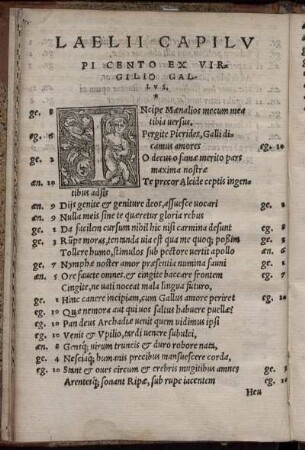 LAELII CAPILV
PI CENTO EX VIR-
GILIO GAL-
LVS.
*
ge. 8 INcipe Mænalios mecum mea
tibia uersus.
Pergite Pierides, Galli di-
camus amores eg. 10
ge. 2 O decus o famæ merito pars
maxima nostræ
æn. 10 Te precor Alcide ceptis ingen-
tibus adsis
æn. 9 Dijs genite & geniture deos, assuesce uocari ge. 1
æn. 9 Nulla meis sine te quæretur gloria rebus
ge. 1 Da facilem cursum nihil hic nisi carmina desunt eg. 8
ge. 3 Rūpe moras, tentanda uia est qua me quoq; possim
Tollere humo, stimulos sub pectore uertit apollo æn. 6
ge. 7 Nymphæ noster amor præsentia numina fauni ge. 1
æn. 5 Ore fauete omnes, & cingite baccare frontem eg. 7
Cingite, ne uati noceat mala lingua futuro,
ge. 1 Hinc canere incipiam, cum Gallus amore periret eg. 10
eg. 10 Quæ nemora aut qui uos saltus habuere puellæ?
eg. 10 Pan deus Archadiæ uenit quem uidimus ipsi
eg. 10 Venit & Vpilio, tardi uenere subulci,
æn. 8 Gensq; uirum truncis & duro robore nata,
ge. 4 Nesciaq; humanis precibus mansuescere corda,
eg. 10 Stant & oues circum & crebris mugitibus amnes ge. 3
Arentesq; sonant Ripæ, sub rupe iacentem eg. 10
Heu